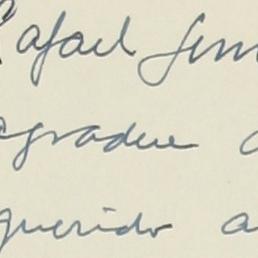 Rafael
agradece a
querido a